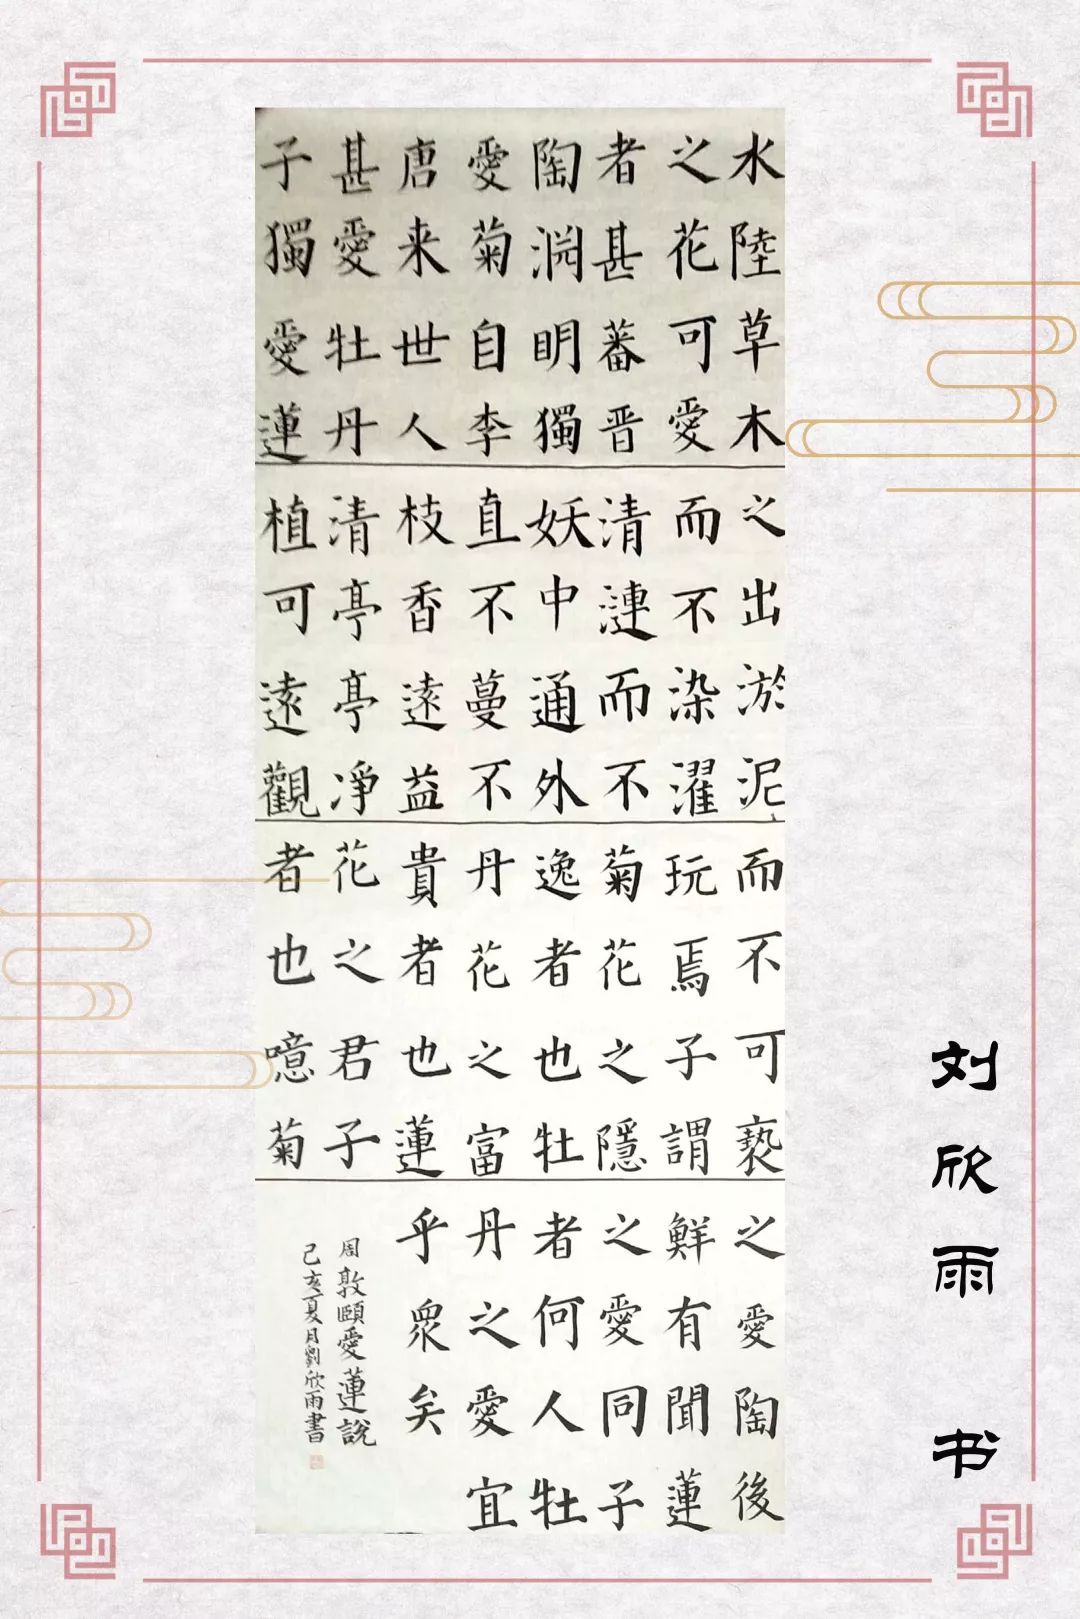 水陸草木
之花可愛
者甚蕃晋
陶渊明獨
愛菊自李
唐来世人
甚愛牡丹
子獨愛蓮
之出淤泥
而不染濯
清漣而不
妖中通外
直不蔓不
枝香遠益
清亭亭凈
植可遠觀
而不可褻
玩焉子謂
菊花之隱
逸者也牡
丹花之富
貴者也蓮
花之君子
者也噫菊
之愛陶後
鮮有聞蓮
之愛同子
者何人牡
丹之愛宜
乎衆矣
周敦頤愛蓮說
己亥夏月劉欣雨書
刘欣雨 书